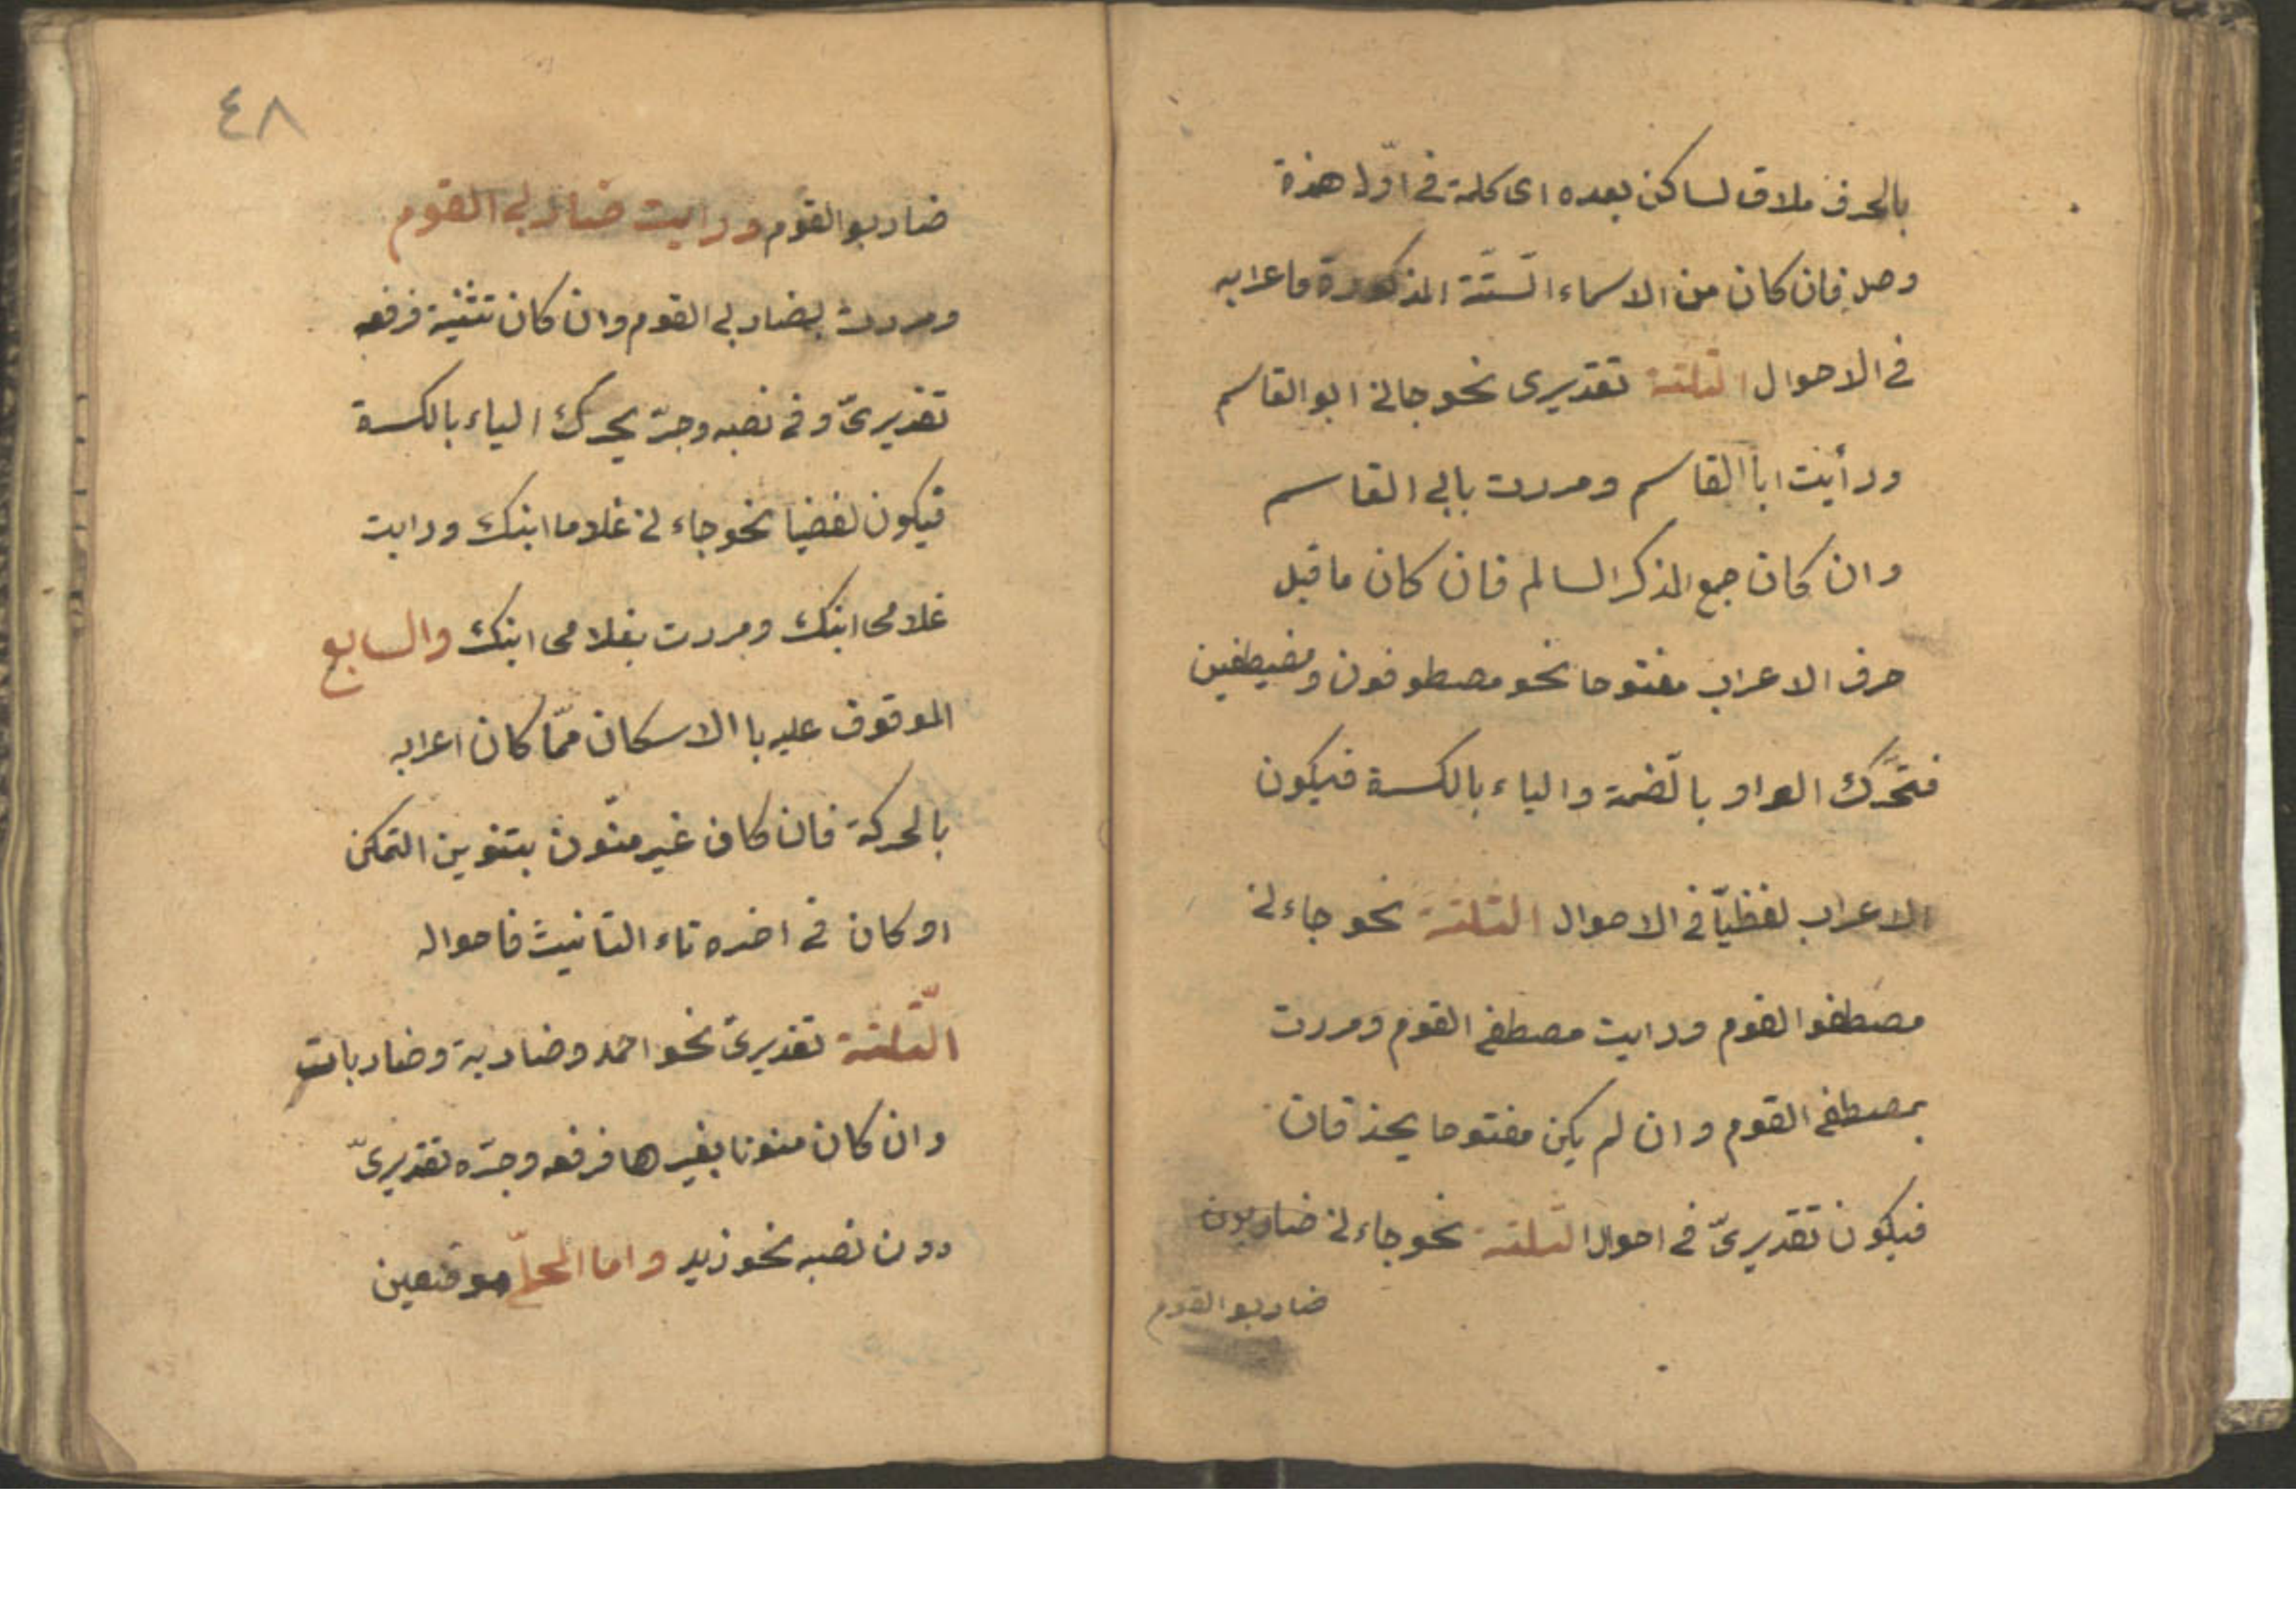 بالحرف ملاق لساكن بعده اى كلمة في اوّله همزة
وصل فان كان من الاسماء السّتّة المذكورة فاعرابه
في الاحوال الثلثة تقديرى نحو جانى ابو القاسم
ورأيت ابا القاسم ومررت بابى القاسم
وان كان جمع المذكر السالم فان كان ما قبل
حرف الاعراب مفتوحا نحو مصطوفون ومصيطفين
فتحّرك الواو بالضّمة والياء بالكسرة فيكون
الاعراب لفظيّا في الاحوال الثلثة نحو جاءنى
مصطفو القوم ورايت مصطفى القوم ومررت
بمصطفى القوم وان لم يكن مفتوحا يحذفان
فيكون تقديرىّ في احوال الثلثة نحو جاءنى ضاربون
ضاربو القوم
٤٨
ضاربو القوم ورايت ضاربى القوم
ومررت بضاربى القوم وان كان تثنية فرفعه
تقديرىّ وفي نصبه وجرّ يحرك الياء بالكسرة
فيكون لفضيا نحو جاءنى غلاما ابنك ورايت
غلامى ابنك ومررت بغلامى ابنك والسابع
الموقوف عليه باالاسكان ممّا كان اعرابه
بالحركة فان كان غير منّون بتنوين التمكن
او كان في اخره تاء التانيث فاحواله
الثّلثة تقديرىّ نحو احمد وضاربة وضاربات
وان كان منونا بغيرها فرفعه وجرّه تقديرىّ
دون نصبه نحو زيد واما المحلّى موضعين